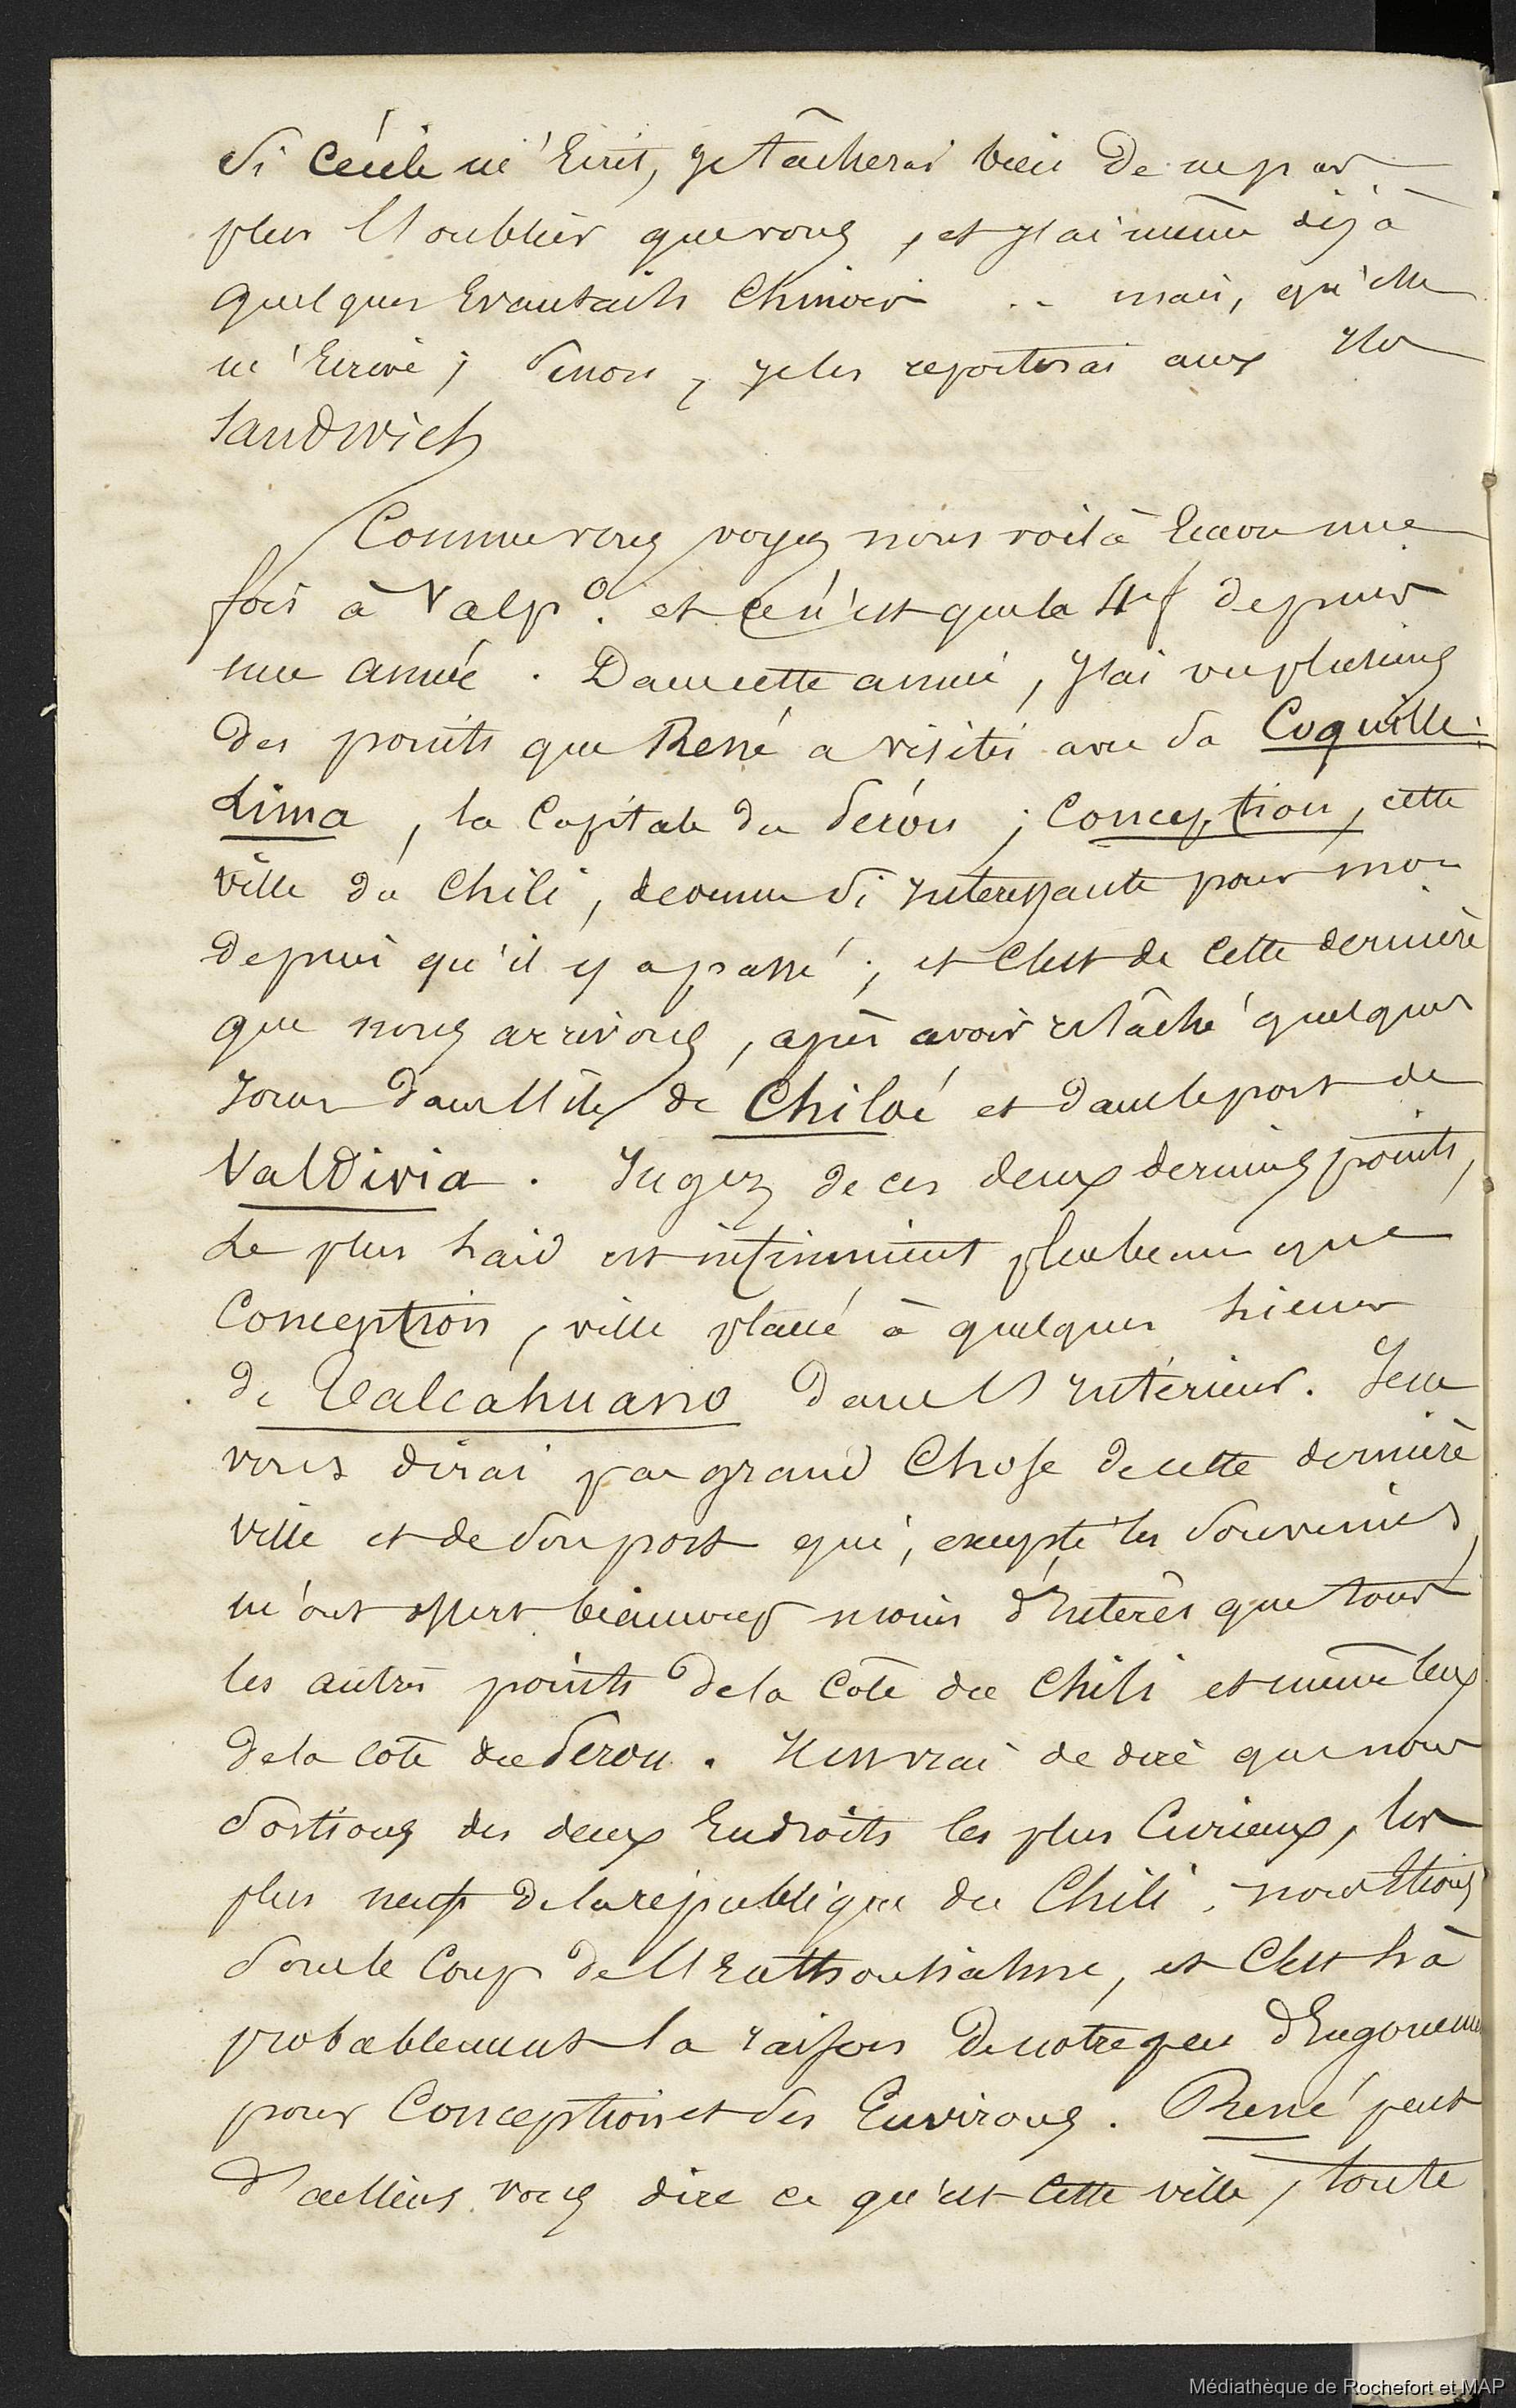 Si Cécile m'Ecrit, je tâcherai bien de ne pas
plus l'oublier que vous, et j'ai même déjà
quelques Evantails Chinois .. mais, qu'elle
m'Ecrive ; sinon, je les reporterai aux Iles
Sandwich
Comme vous voyez nous voilà Encore une
fois à Valpo. et ce n'est que la 4e f depuis
une année. Dans cette année, J'ai vu plusieurs
des points que René a visités avec sa Coquille :
Lima, la Capitale du Pérou ; Conception, cette
ville du Chili, devenue si Intéressante pour moi
depuis qu'il y a passé ; et C'est de Cette dernière
que nous arrivons, après avoir relâché quelques
Jours dans l'île de Chiloé et dans le port de
Valdivia. Jugez de ces deux derniers points,
Le plus laid est infiniment plus beau que
Conception, ville placée à quelques lieues
de Talcahuano dans l'Intérieur. Je ne
vous dirai pas grand Chose de cette dernière
ville et de son port qui, excepté les Souvenirs,
m'ont offert beaucoup moins d'Intérêt que tous
les autres points de la Côte du Chili et même ceux
de la côte du Pérou. Il est vrai de dire que nous
Sortions des deux Endroits les plus Curieux, les
plus neufs de la république du Chili. nous étions
Sous le Coup de l'Enthousiasme, et C'est là
probablement la raison de notre peu d'Engouement
pour Conception et ses Environs. René peut
d'ailleurs vous dire ce qu'est Cette ville, toute
Médiathèque de Rochefort et MAP